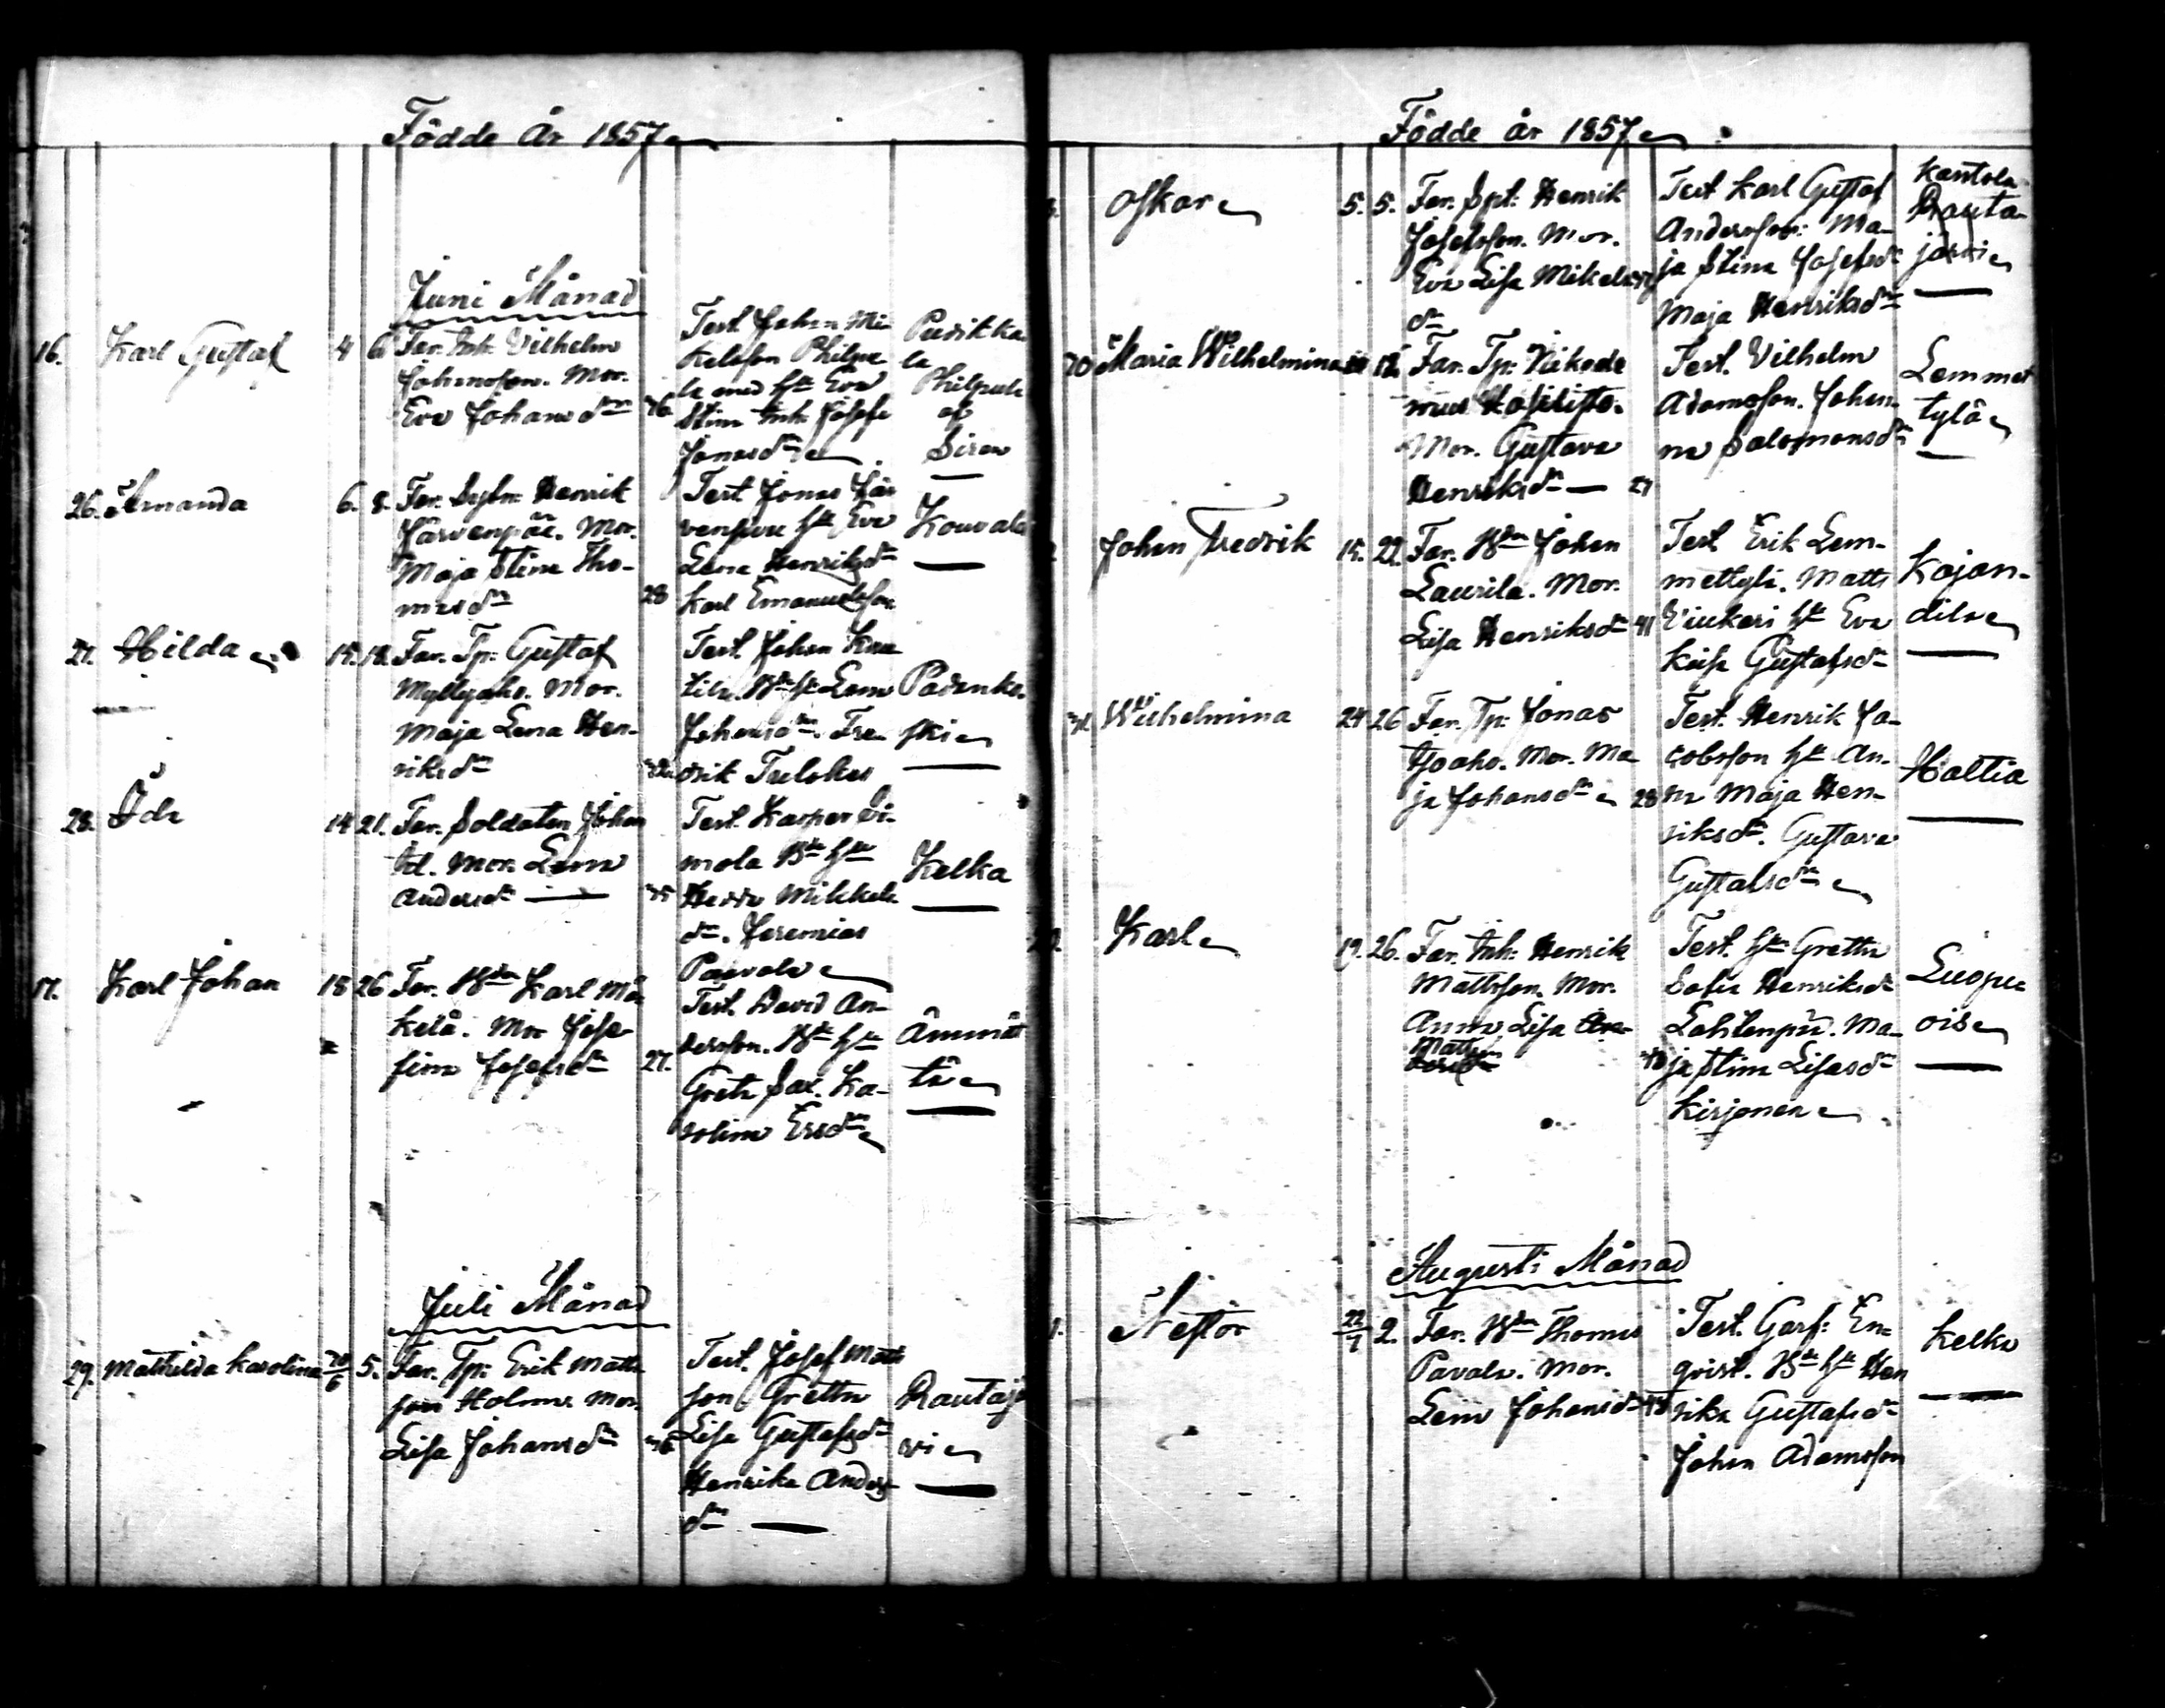 Födde År 1857
Juni Månad
16. Karl Gustaf 4 6. Far. Inh. Vilhelm
Johansson. Mor.
Eva Johansdr
Test. Johan Mi-
kelsson Philpu-
la med hu Eva
Stina Inh. Josefa
Jonasdr
Purikka-
la
Philpula
af
Siren
26. Amanda 6. 8. Far. Sytn. Henrik
Järvenpää. Mor.
Maja Stina Tho-
masdr 28
Test Jonas Jär
venpää hu Eva
Lena Henriksdr
Karl Emanuelsson
Kouvala
27. Hilda 15. 18. Far. Tp. Gustaf
Myllyaho. Mor.
Maja Lena Hen-
riksdr
Test. Johan
Lena
Johansdr. Fre-
drik
Padanko-
ski
28. Ida 14 21. Far. Soldaten Johan
Mor. Lena
Andersdr
Test. Kasper Si-
mola Bde hu
Hedda Mikkels-
dr. Jeremias
Paavola
Kelka
17. Karl Johan 18 26 Far. Bdn Karl Mä-
kelä. Mor Jose-
fina Josefsdr 27.
Test. David An-
dersson. Bde hu
Greta Sax. Ka-
rolina Ersdr
Ämmät
sä
Juli Månad
29. Mathilda Karolina 28/6 5. Far. Tp. Erik Matts-
son Holma. Mor.
Lisa Johansdr
Test. Josef Matts
son Gretha
Lisa Gustafsdr
Henrika Anders
dr
Rautajär
vi
Födde år 1857
Oskar 5. 5. Far. Spt. Henrik
Josefsson. Mor.
Eva Lisa Mikels
dr
Test Karl Gustaf
Andersson. Ma-
ja Stina Josefsdr
Maja Henriksdr
Kantola
Rauta-
järvi
30 Maria Wilhelmina 12. Far. Tp. Nikode
mus
Mor. Gustava
Henriksdr 27
Test. Vilhelm
Adamsson. Johan-
na Salomonsdr
Lemmet
tylä
Johan Fredrik 15. 22. Far. Bdn Johan
Laurila. Mor.
Lisa Henriksdr 41
Test Erik Lem-
mettylä. Matts
Viukari hu Eva
Kaisa Gustafsdr
Kajan-
dila
31. Wilhelmina 24 26 Far. Tp. Jonas
Isoaho. Mor. Ma
ja Johansdr 28
Test. Henrik Ja-
cobsson hu An-
na Maja Hen-
riksdr. Gustava
Gustafsdr
Haltia
Karl 19. 26. Far. Inh. Henrik
Mattsson. Mor.
Anna Lisa
Matts
Test. hu Gretha
Sofia Henriksdr
Lahtenpää. Ma-
ja Stina Lisasdr
Kirjonen
Luopi-
ois
Augusti Månad
Nestor 22/7 2. Far. Bdn Thomas
Pavala. Mor.
Lena Johansdr
Test. Garf. En-
qvist. Bde hu Hen
rika Gustafsdr
Johan Adamsson
Kelka